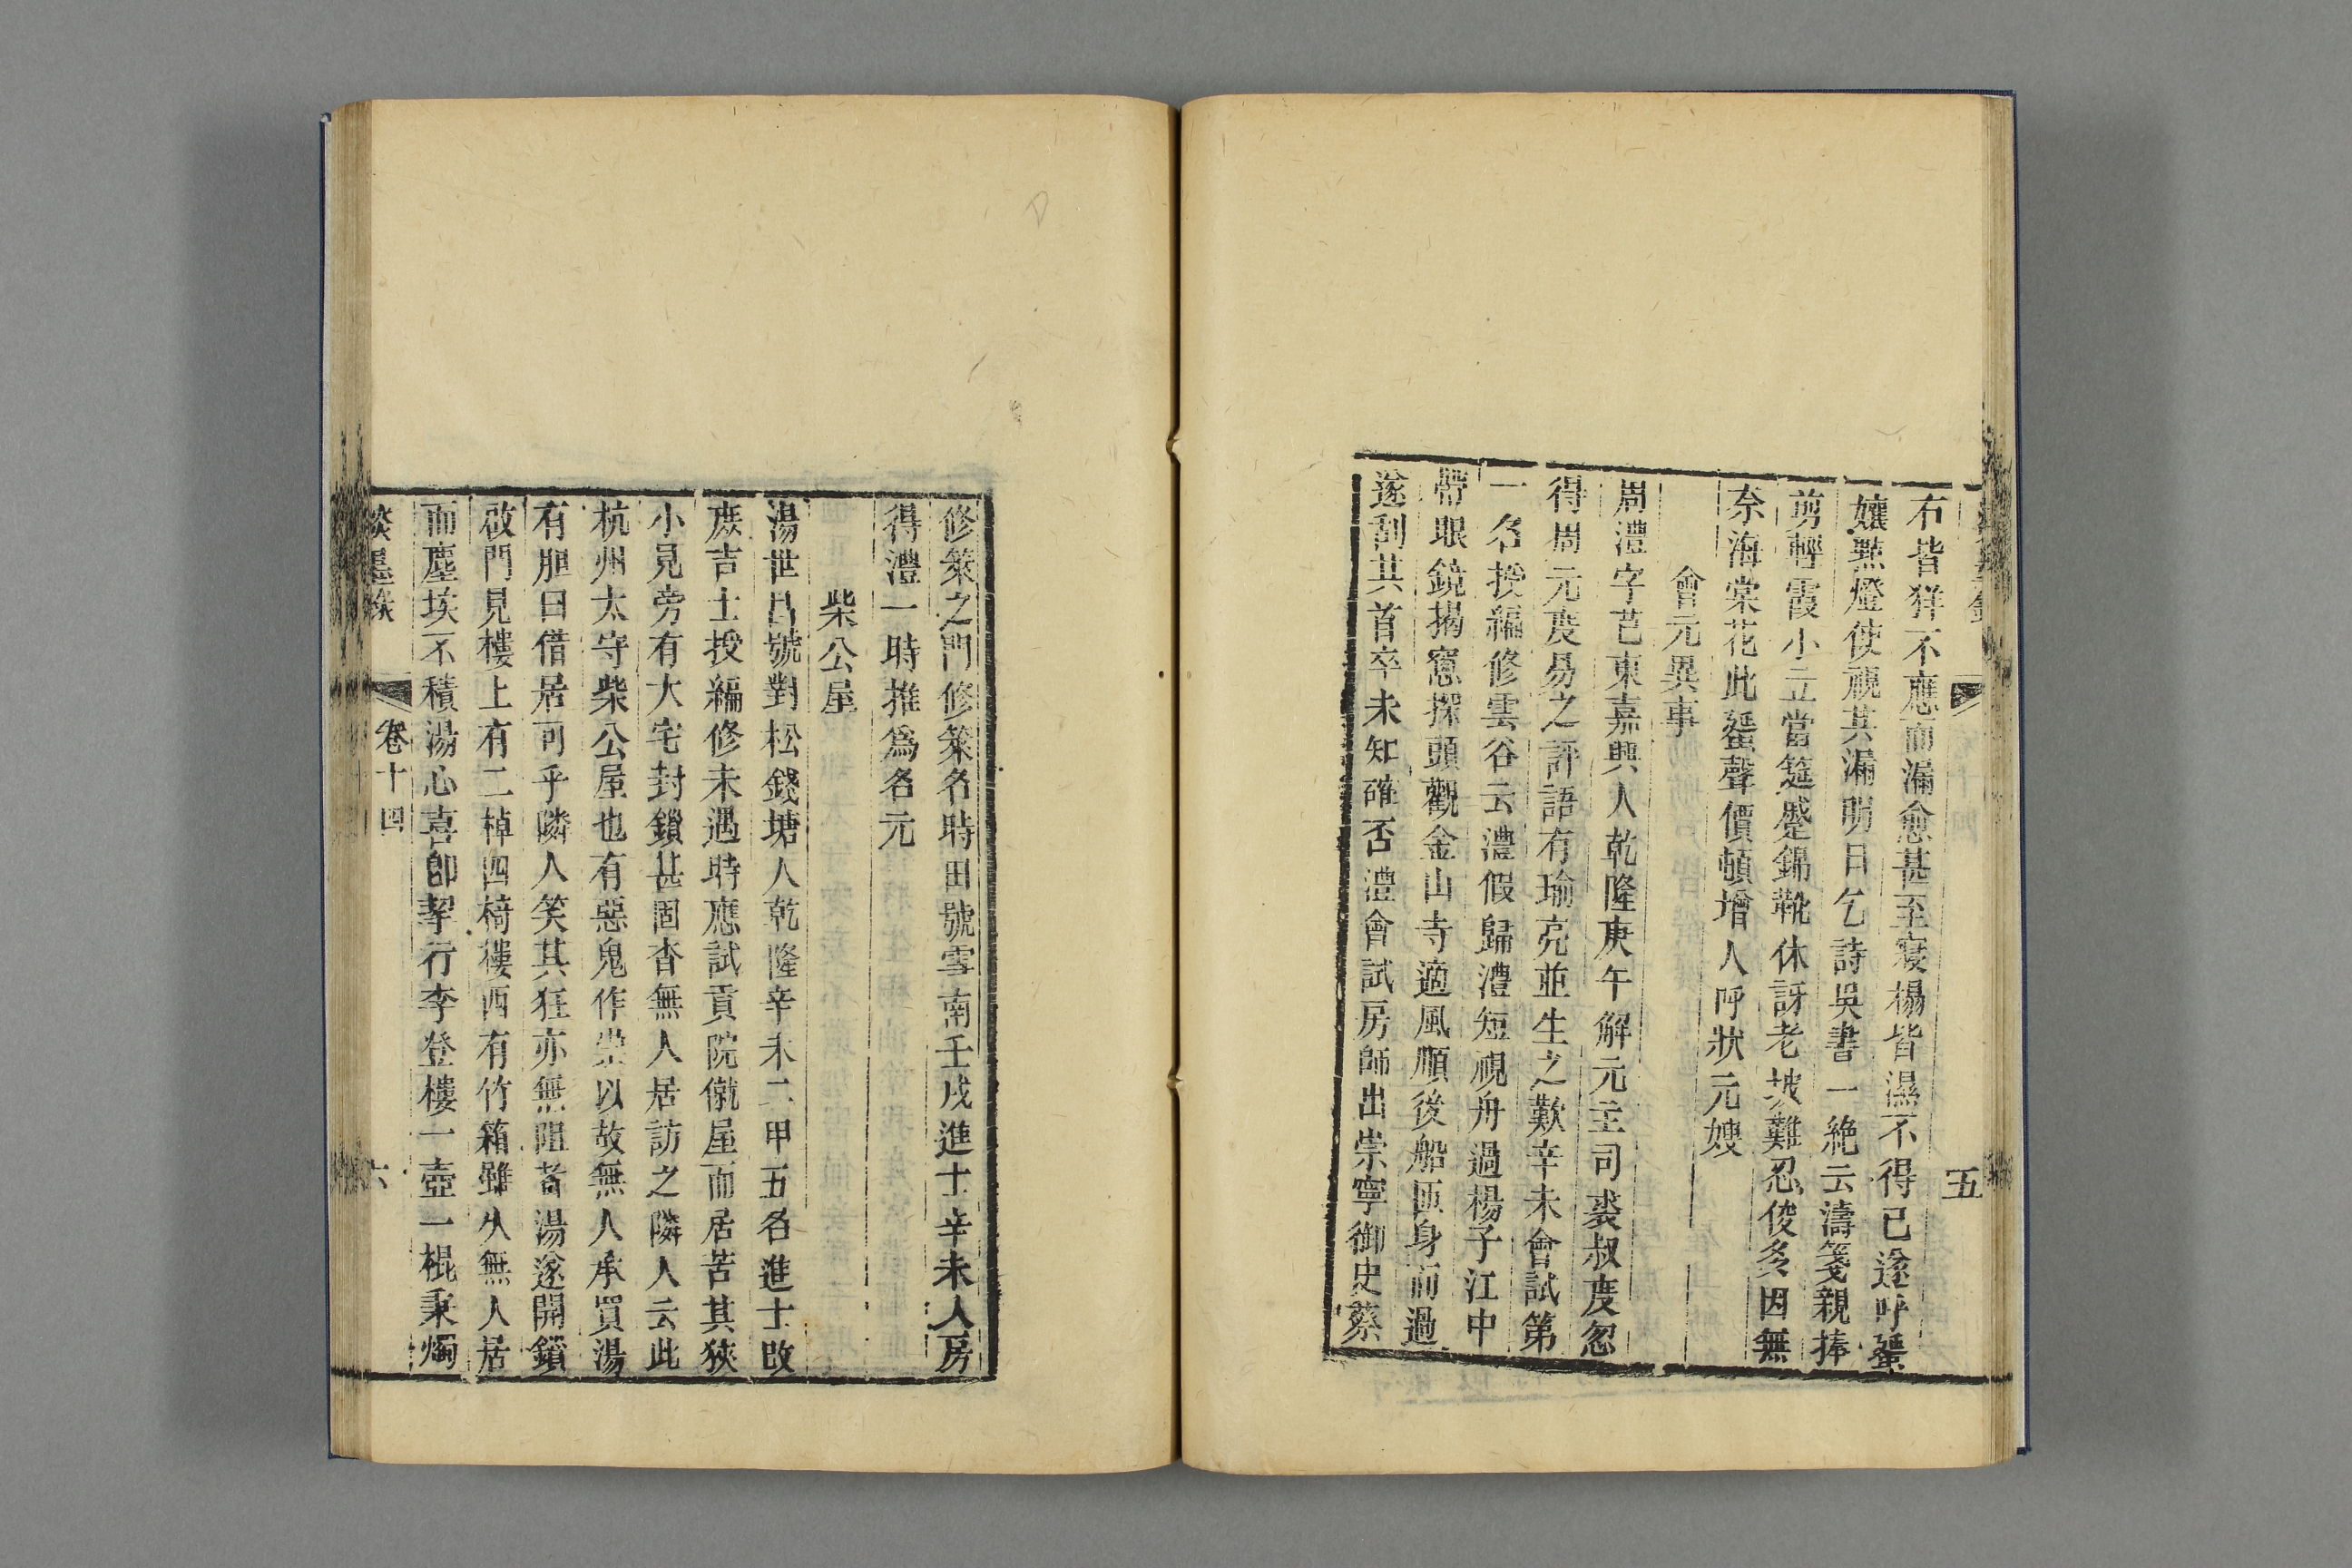 右皆佯不應而漏愈甚至寢榻皆濕不得已遂呼蜑
孃點燈使視其漏明日乞詩吳書一絕云濤箋親捧
剪輕霞小立當筵蹙錦靴休訝老坡難忍俊多因無
奈海棠花此蜑聲價頓增人呼狀元嫂
會元異事
周澧字芑東嘉興人乾隆庚午解元主司裘叔度忽
得周元度易之評語有瑜亮並生之歎辛未會試第
一名授編修雲谷云澧假歸澧短視舟過楊子江中
帶眼鏡揭窻探頭觀金山寺適風順後船匝身而過
遂刮其首卒未知確否澧會試房師出崇寧御史蔡
五
修萊之門修萊名時田號雪南壬戌進士辛未入房
得澧一時推爲名元
柴公屋
湯世昌號對松錢塘人乾隆辛未二甲五名進士改
庶吉士授編修未遇時應試貢院僦屋而居苦其狹
小見旁有大宅封鎖甚固杳無人居訪之隣人云此
杭州太守柴公屋也有惡鬼作祟以故無人承買湯
有胆曰借居可乎隣人笑其狂亦無阻者湯遂開鎖
啟門見樓上有二棹四椅樓西有竹箱雖久無人居
而塵埃不積湯心喜卽挈行李登樓一壺一棍秉燭
卷十四
六